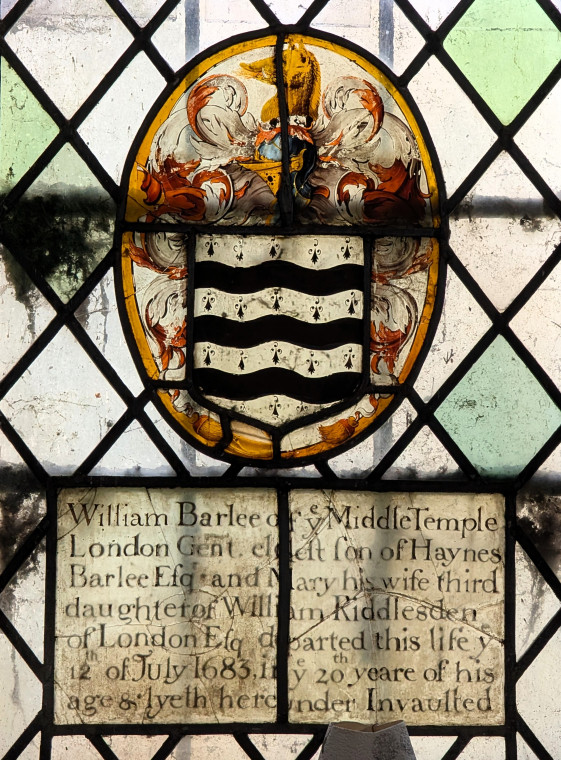 William Barlee of yᵉ Middle Temple
London Gent. eldest ſon of Haynes
Barlee Eſqʳ and Mary his wife third
daughter of William Riddlesden
of London Eſq departed this life yᵉ
12ᵗʰ of July 1683, in yᵉ 20ᵗʰ yeare of his
age & lyeth hereunder Invaulted